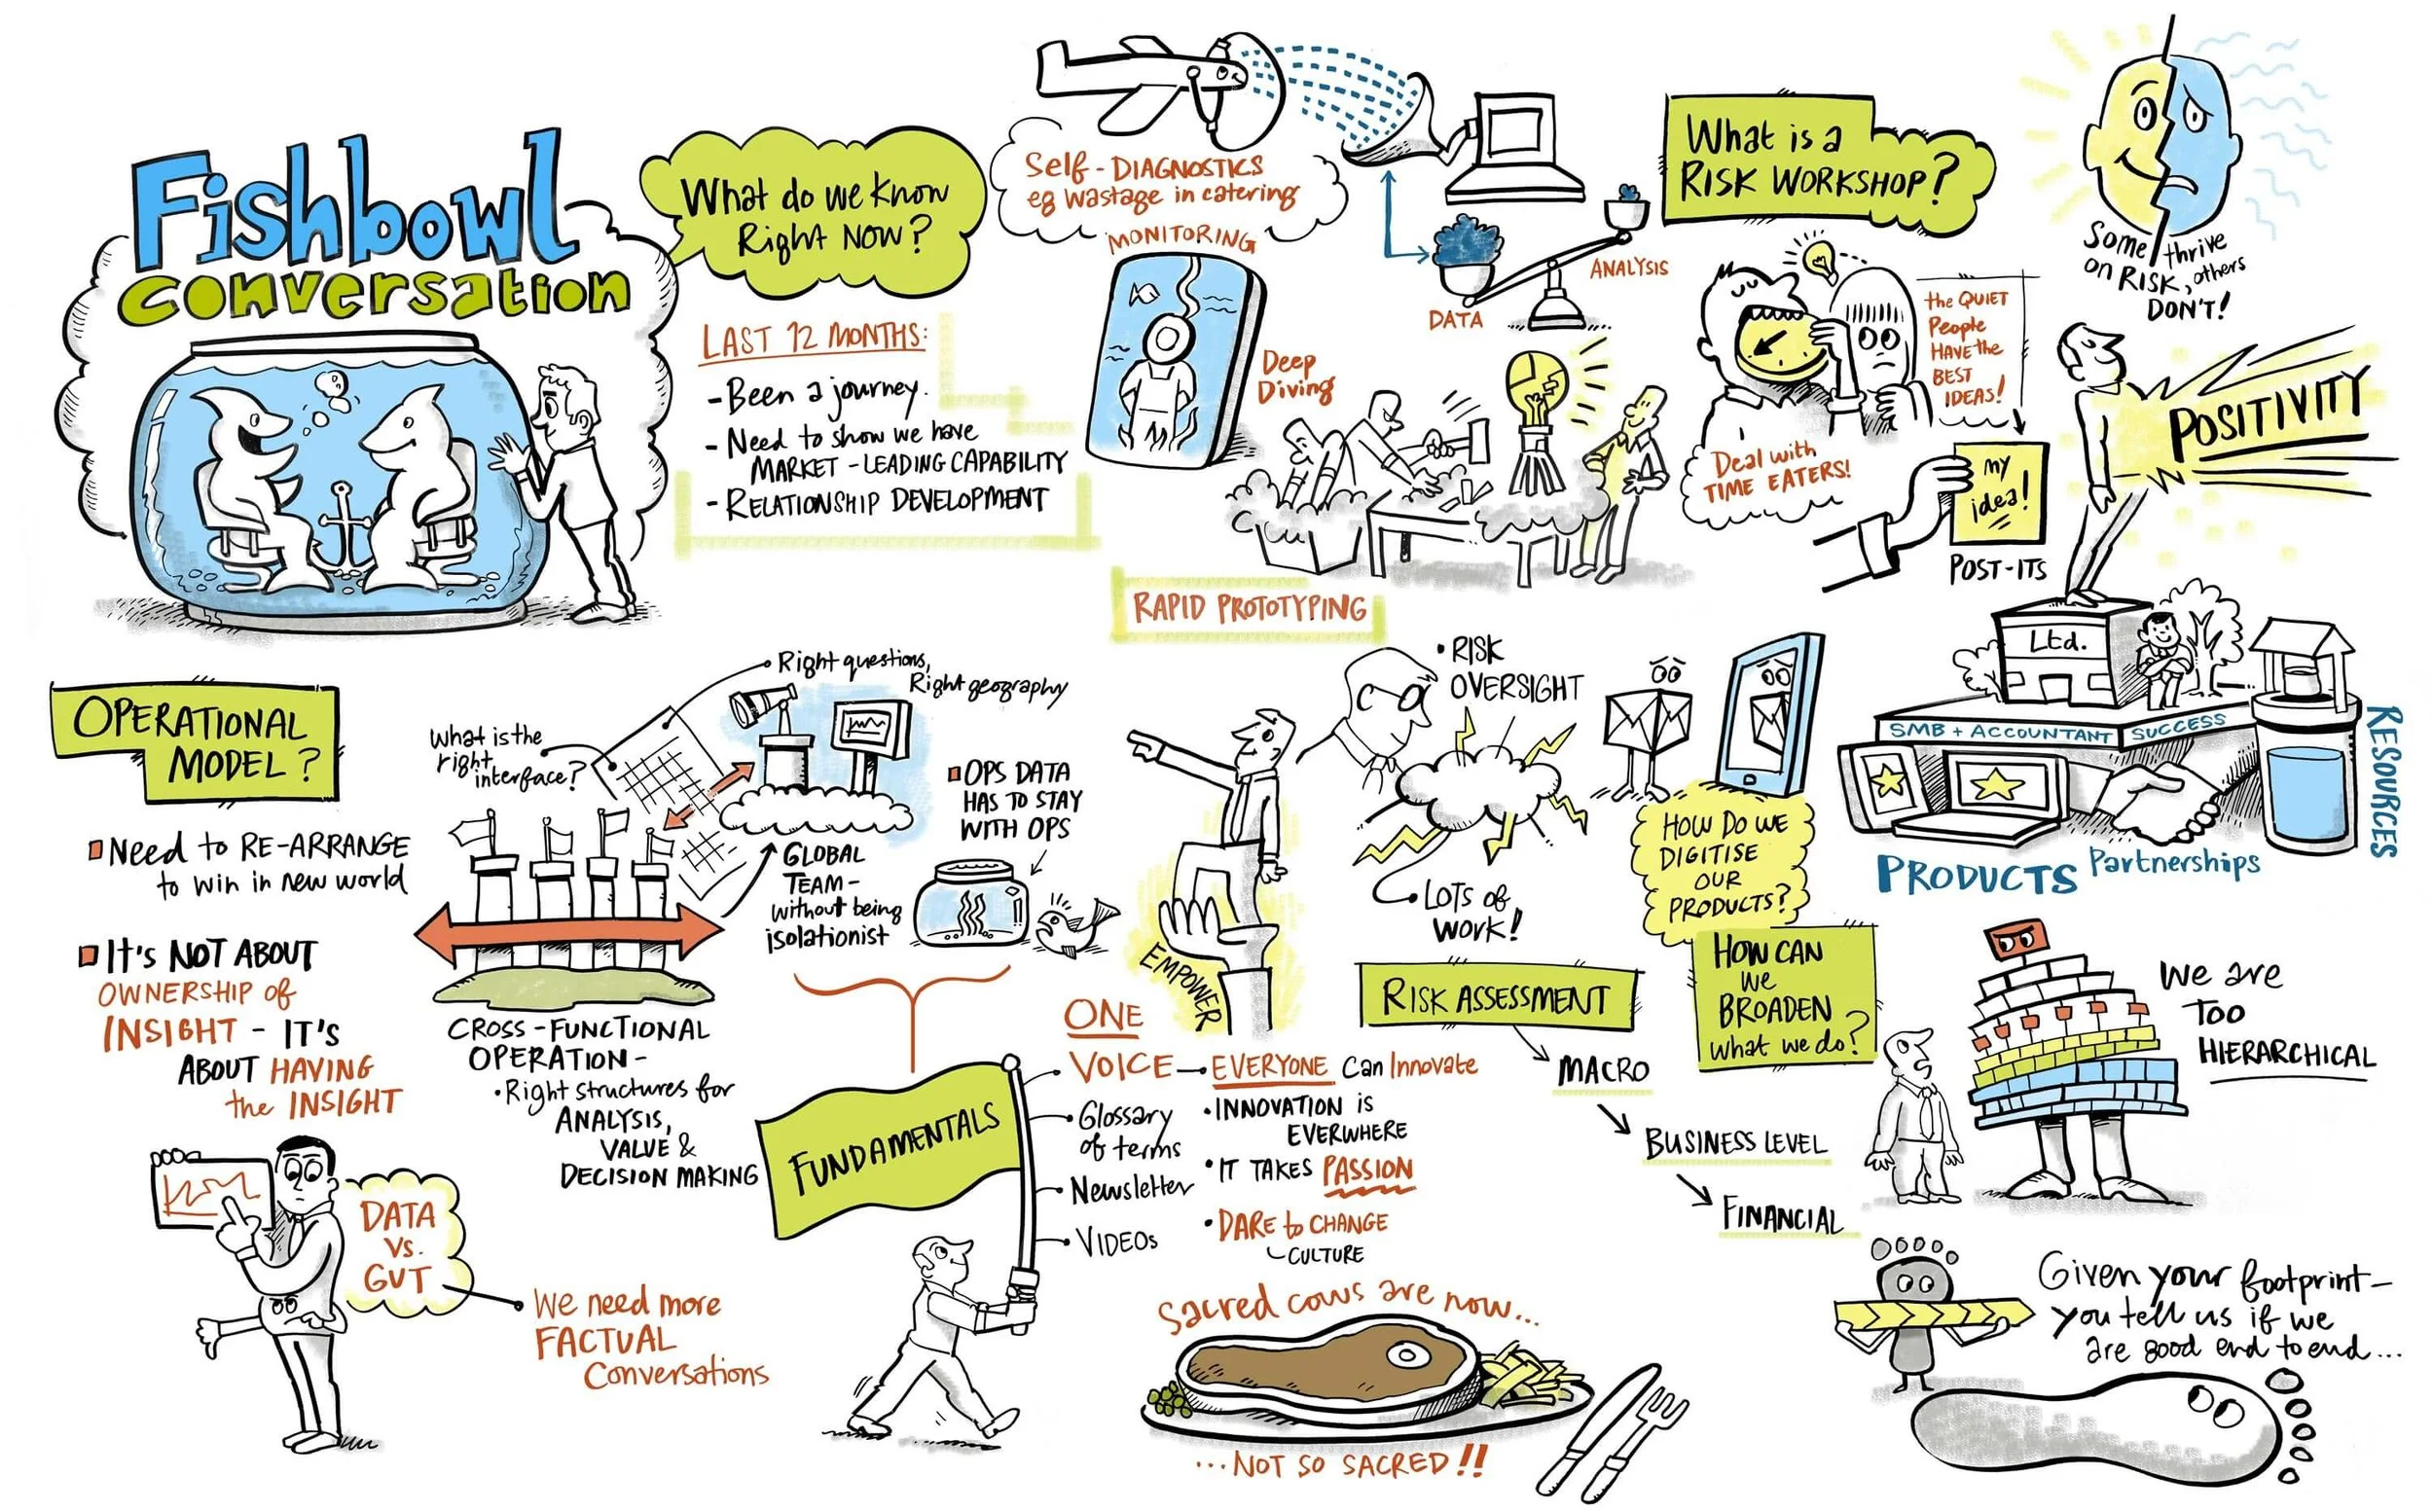 Fishbowl
conversation
What do we know
Right Now?
LAST 12 MONTHS:
- Been a journey.
- Need to show we have
MARKET - LEADING CAPABILITY
- RELATIONSHIP DEVELOPMENT
Self - DIAGNOSTICS
eg wastage in catering
MONITORING
Deep
Diving
DATA
ANALYSIS
RAPID PROTOTYPING
What is a
RISK WORKSHOP?
Some thrive
on RISK, others
DON'T!
the QUIET
People
HAVE the
BEST
IDEAS!
Deal with
TIME EATERS!
my
idea!
POST-ITS
POSITIVITY
Ltd.
SMB + ACCOUNTANT SUCCESS
RESOURCES
PRODUCTS
Partnerships
OPERATIONAL
MODEL?
Need to RE-ARRANGE
to win in new world
It's NOT ABOUT
OWNERSHIP of
INSIGHT - IT'S
ABOUT HAVING
the INSIGHT
DATA
Vs.
GUT
We need more
FACTUAL
Conversations
Right questions,
Right geography
What is the
right
interface?
GLOBAL
TEAM -
without being
isolationist
OPS DATA
HAS TO STAY
WITH OPS
CROSS - FUNCTIONAL
OPERATION -
• Right structures for
ANALYSIS,
VALUE &
DECISION MAKING
FUNDAMENTALS
ONE
VOICE
Glossary
of terms
Newsletter
VIDEOs
EVERYONE Can Innovate
• INNOVATION is
EVERWHERE
• IT TAKES PASSION
• DARE to CHANGE
CULTURE
EMPOWER
• RISK
OVERSIGHT
LOTS of
WORK!
HOW DO WE
DIGITISE
OUR
PRODUCTS?
RISK ASSESSMENT
MACRO
BUSINESS LEVEL
FINANCIAL
HOW CAN
we
BROADEN
what we do?
We are
TOO
HIERARCHICAL
Sacred cows are now...
...NOT SO SACRED!!
Given your footprint-
you tell us if we
are good end to end...